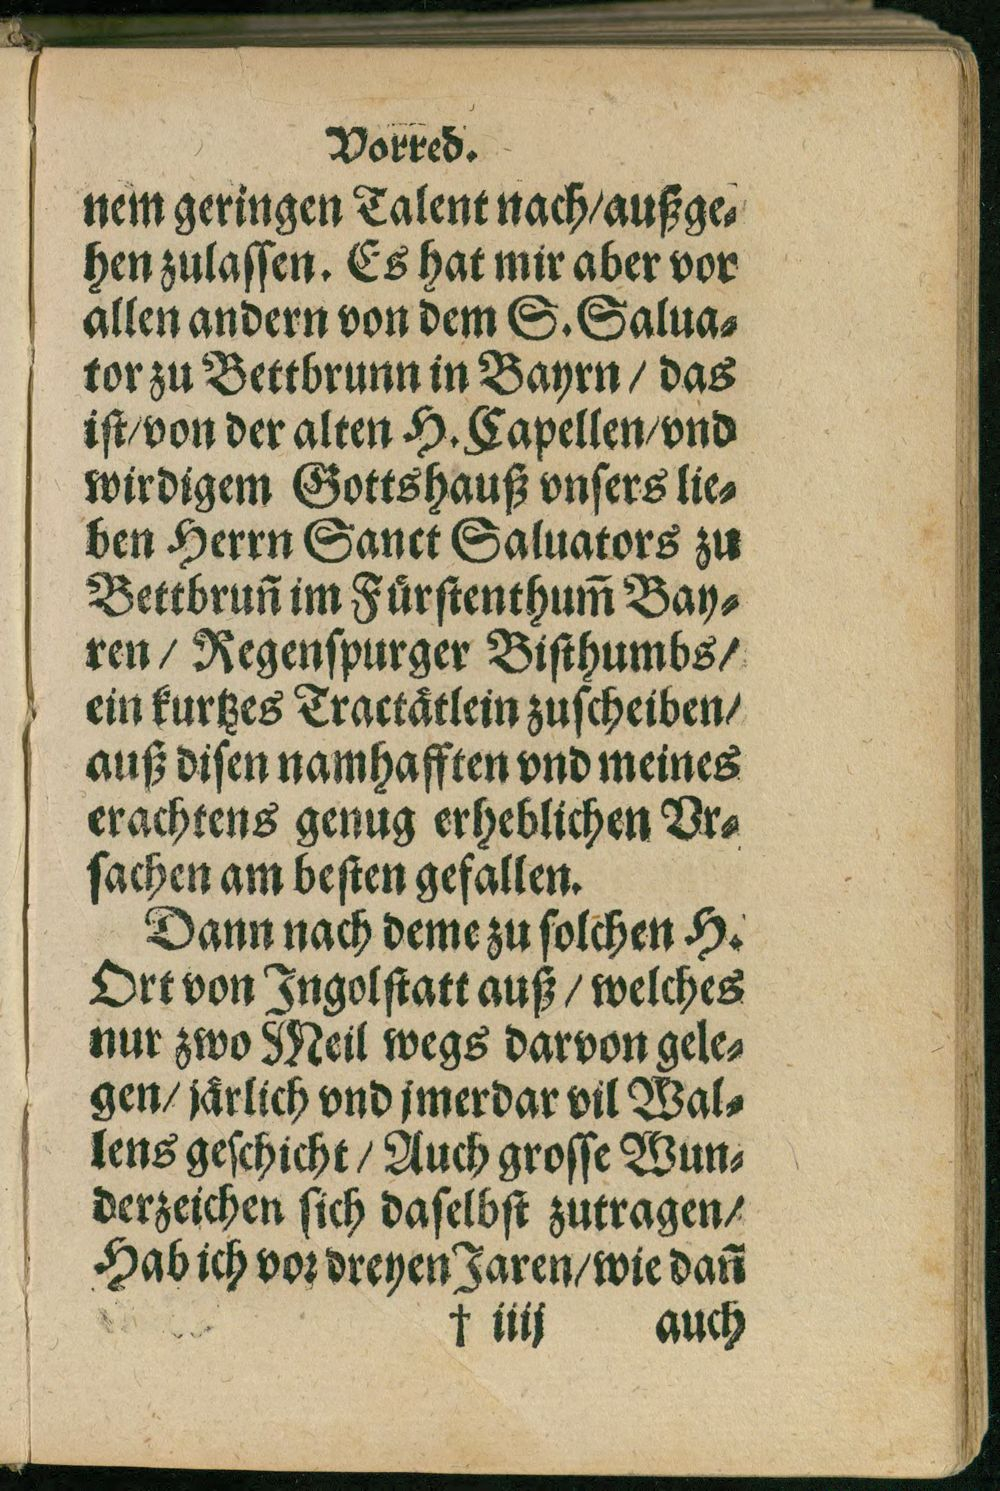 Vorred.
nem geringen Talent nach/außge⸗
hen zulassen. Es hat mir aber vor
allen andern von dem S. Salua⸗
tor zu Bettbrunn in Bayrn / das
ist/von der alten H. Capellen/vnd
wirdigem Gottshauß vnsers lie⸗
ben Herrn Sanct Saluators zu
Bettbrun̄ im Fürstenthum̄ Bay⸗
ren / Regenspurger Bisthumbs/
ein kurtzes Tractätlein zuscheiben/
auß disen namhafften vnd meines
erachtens genug erheblichen Vr⸗
sachen am besten gefallen.
Dann nach deme zu solchen H.
Ort von Ingolstatt auß / welches
nur zwo Meil wegs darvon gele⸗
gen/ järlich vnd jmerdar vil Wal⸗
lens geschicht / Auch grosse Wun⸗
derzeichen sich daselbst zutragen/
Hab ich vor dreyen Jaren/wie dan̄
† iiij auch